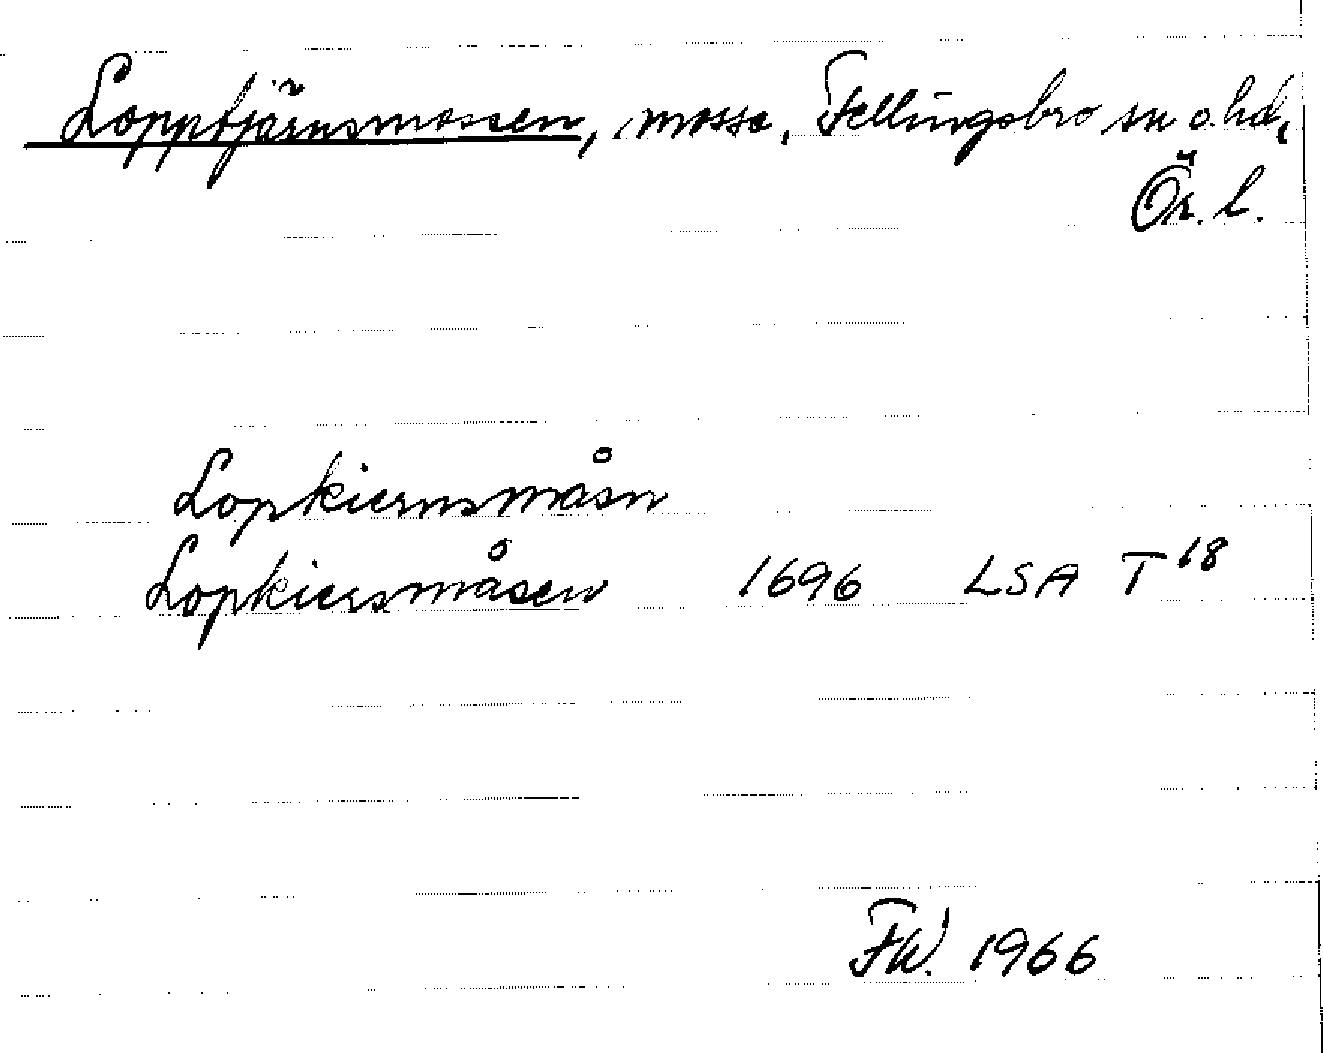 Lopptjärnsmossen, mosse, Fellingsbro sn o. hd,
Ör. l.
Lopkiernsmåsn
Lopkiersmåsen 1696 LSA T 18
FW. 1966